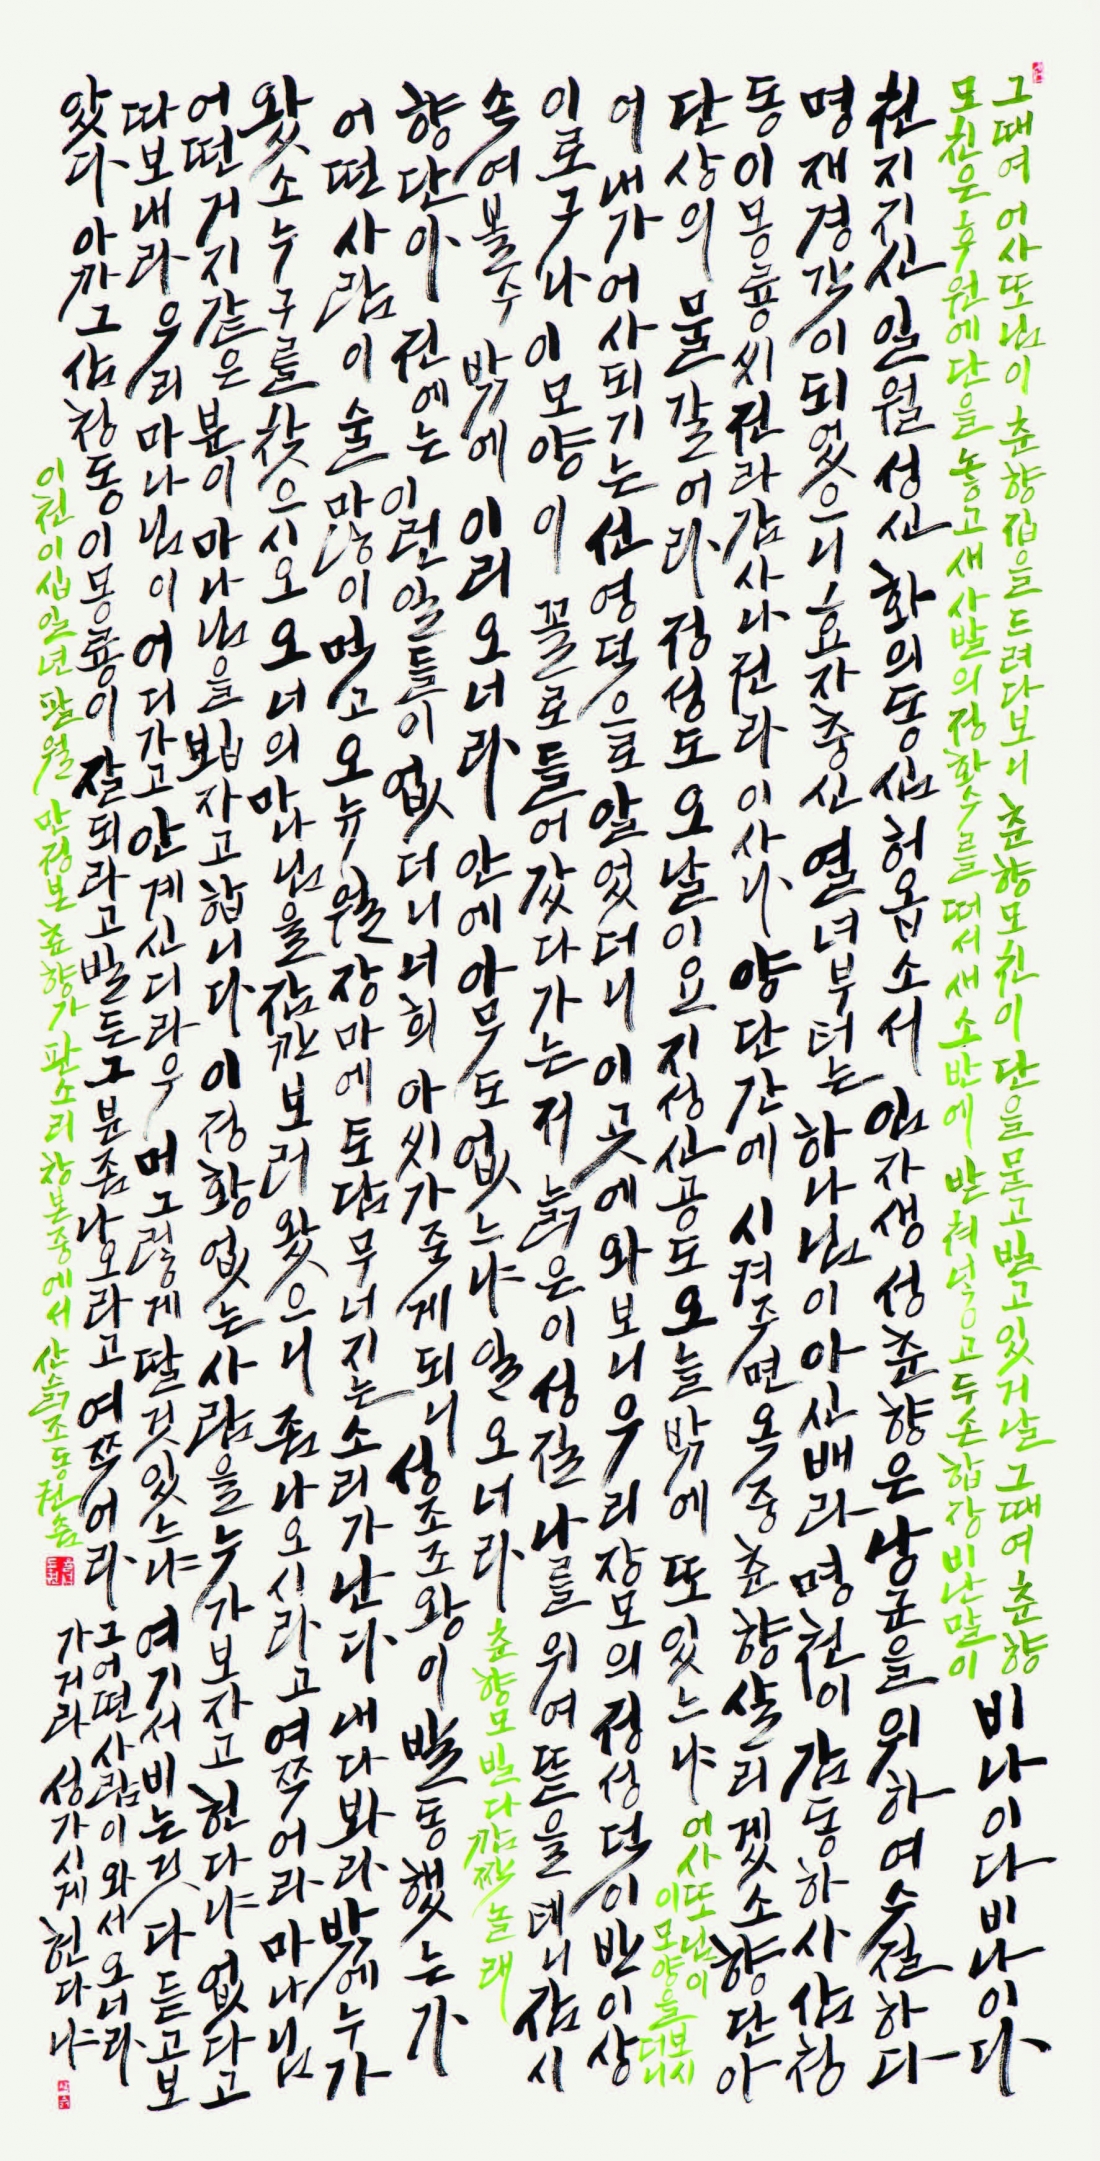 그때여 어사또님이 춘향집을 드려다보니 춘향모친이 단을 묻고 빌고있거날 그때여 춘향
모친은 후원에 단을 놓고 새사발의 정화수를 떠서 새소반에 받쳐놓고 두손합장 비난말이
비나이다 비나이다
천지지신 일월성신 화의동심 허옵소서 임자생 성춘향은 낭군을 위하여 수절하다
명재경각이 되었으니 효자충신 열녀부터는 하나님이 아신배라 명천이 감동하사 삼청
동 이몽룡씨 전라감사나 전라어사나 양단간에 시켜주면 옥중춘향 살리겠소 향단아
단상의 물 갈어라 정성도 오날이요 지성신공도 오늘밖에 또 있느냐
어사또님이
이 모양을 보시더니
어 내가 어사되기는 선영덕으로 알었더니 이곳에 와보니 우리장모의 정성덕이 반이상
이로구나 이 모양 이 꼴로 들어갔다가는 저 늙은이 성질 나를 위여뜯을테니 잠시
속여볼수밖에 이리오너라 안에 아무도 없느냐 일오너라
춘향모 빌다 깜짝놀래
향단아 전에는 이런일들이 없더니 너희 아씨가 죽게되니 성조조왕이 발동했는가
어떤 사람이 술많이 먹고 오뉴월장마에 토담무너지는 소리가 난다 내다봐라 밖에 누가
왔소 누구를 찾으시오 오 너의 마나님을 잠깐 보러왔으니 좀 나오시라고 여쭈어라 마나님
어떤 거지같은 분이 마나님을 뵙자고 합니다 이 정황없는 사람을 누가 보자고 헌다냐 없다고
따보내라 우리 마나님이 어디가고 안계신디라우 머 그렇게 딸것있느냐 여기서 비는것 다 듣고 보
았다 아까 그 삼청동 이몽룡이 잘되라고 빌든 그분 좀 나오라고 여쭈어라
그 어떤 사람이 와서 오너라
가거라 성가시게 헌다냐
이천이십일년 팔월 만정본 춘향가 판소리 창본중에서 산늙 조동천 씀